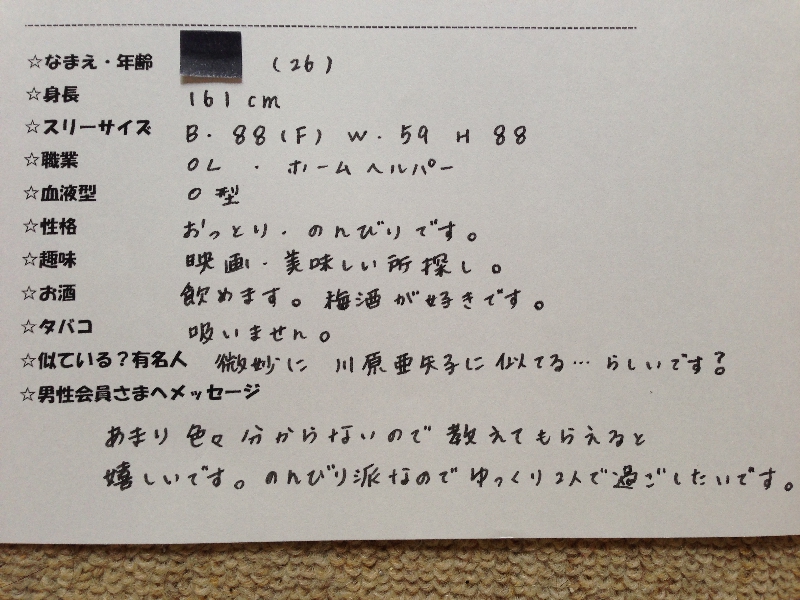 ☆なまえ・年齢 (26)
☆身長 161cm
☆スリーサイズ B. 88(F) W. 59 H 88
☆職業 OL ・ ホームヘルパー
☆血液型 O型
☆性格 おっとり・のんびりです。
☆趣味 映画・美味しい所探し。
☆お酒 飲めます。梅酒が好きです。
☆タバコ 吸いません。
☆似ている?有名人 微妙に 川原亜矢子に似てる… らしいです?
☆男性会員さまへメッセージ
あまり色々分からないので教えてもらえると
嬉しいです。のんびり派なのでゆっくり2人で過ごしたいです。